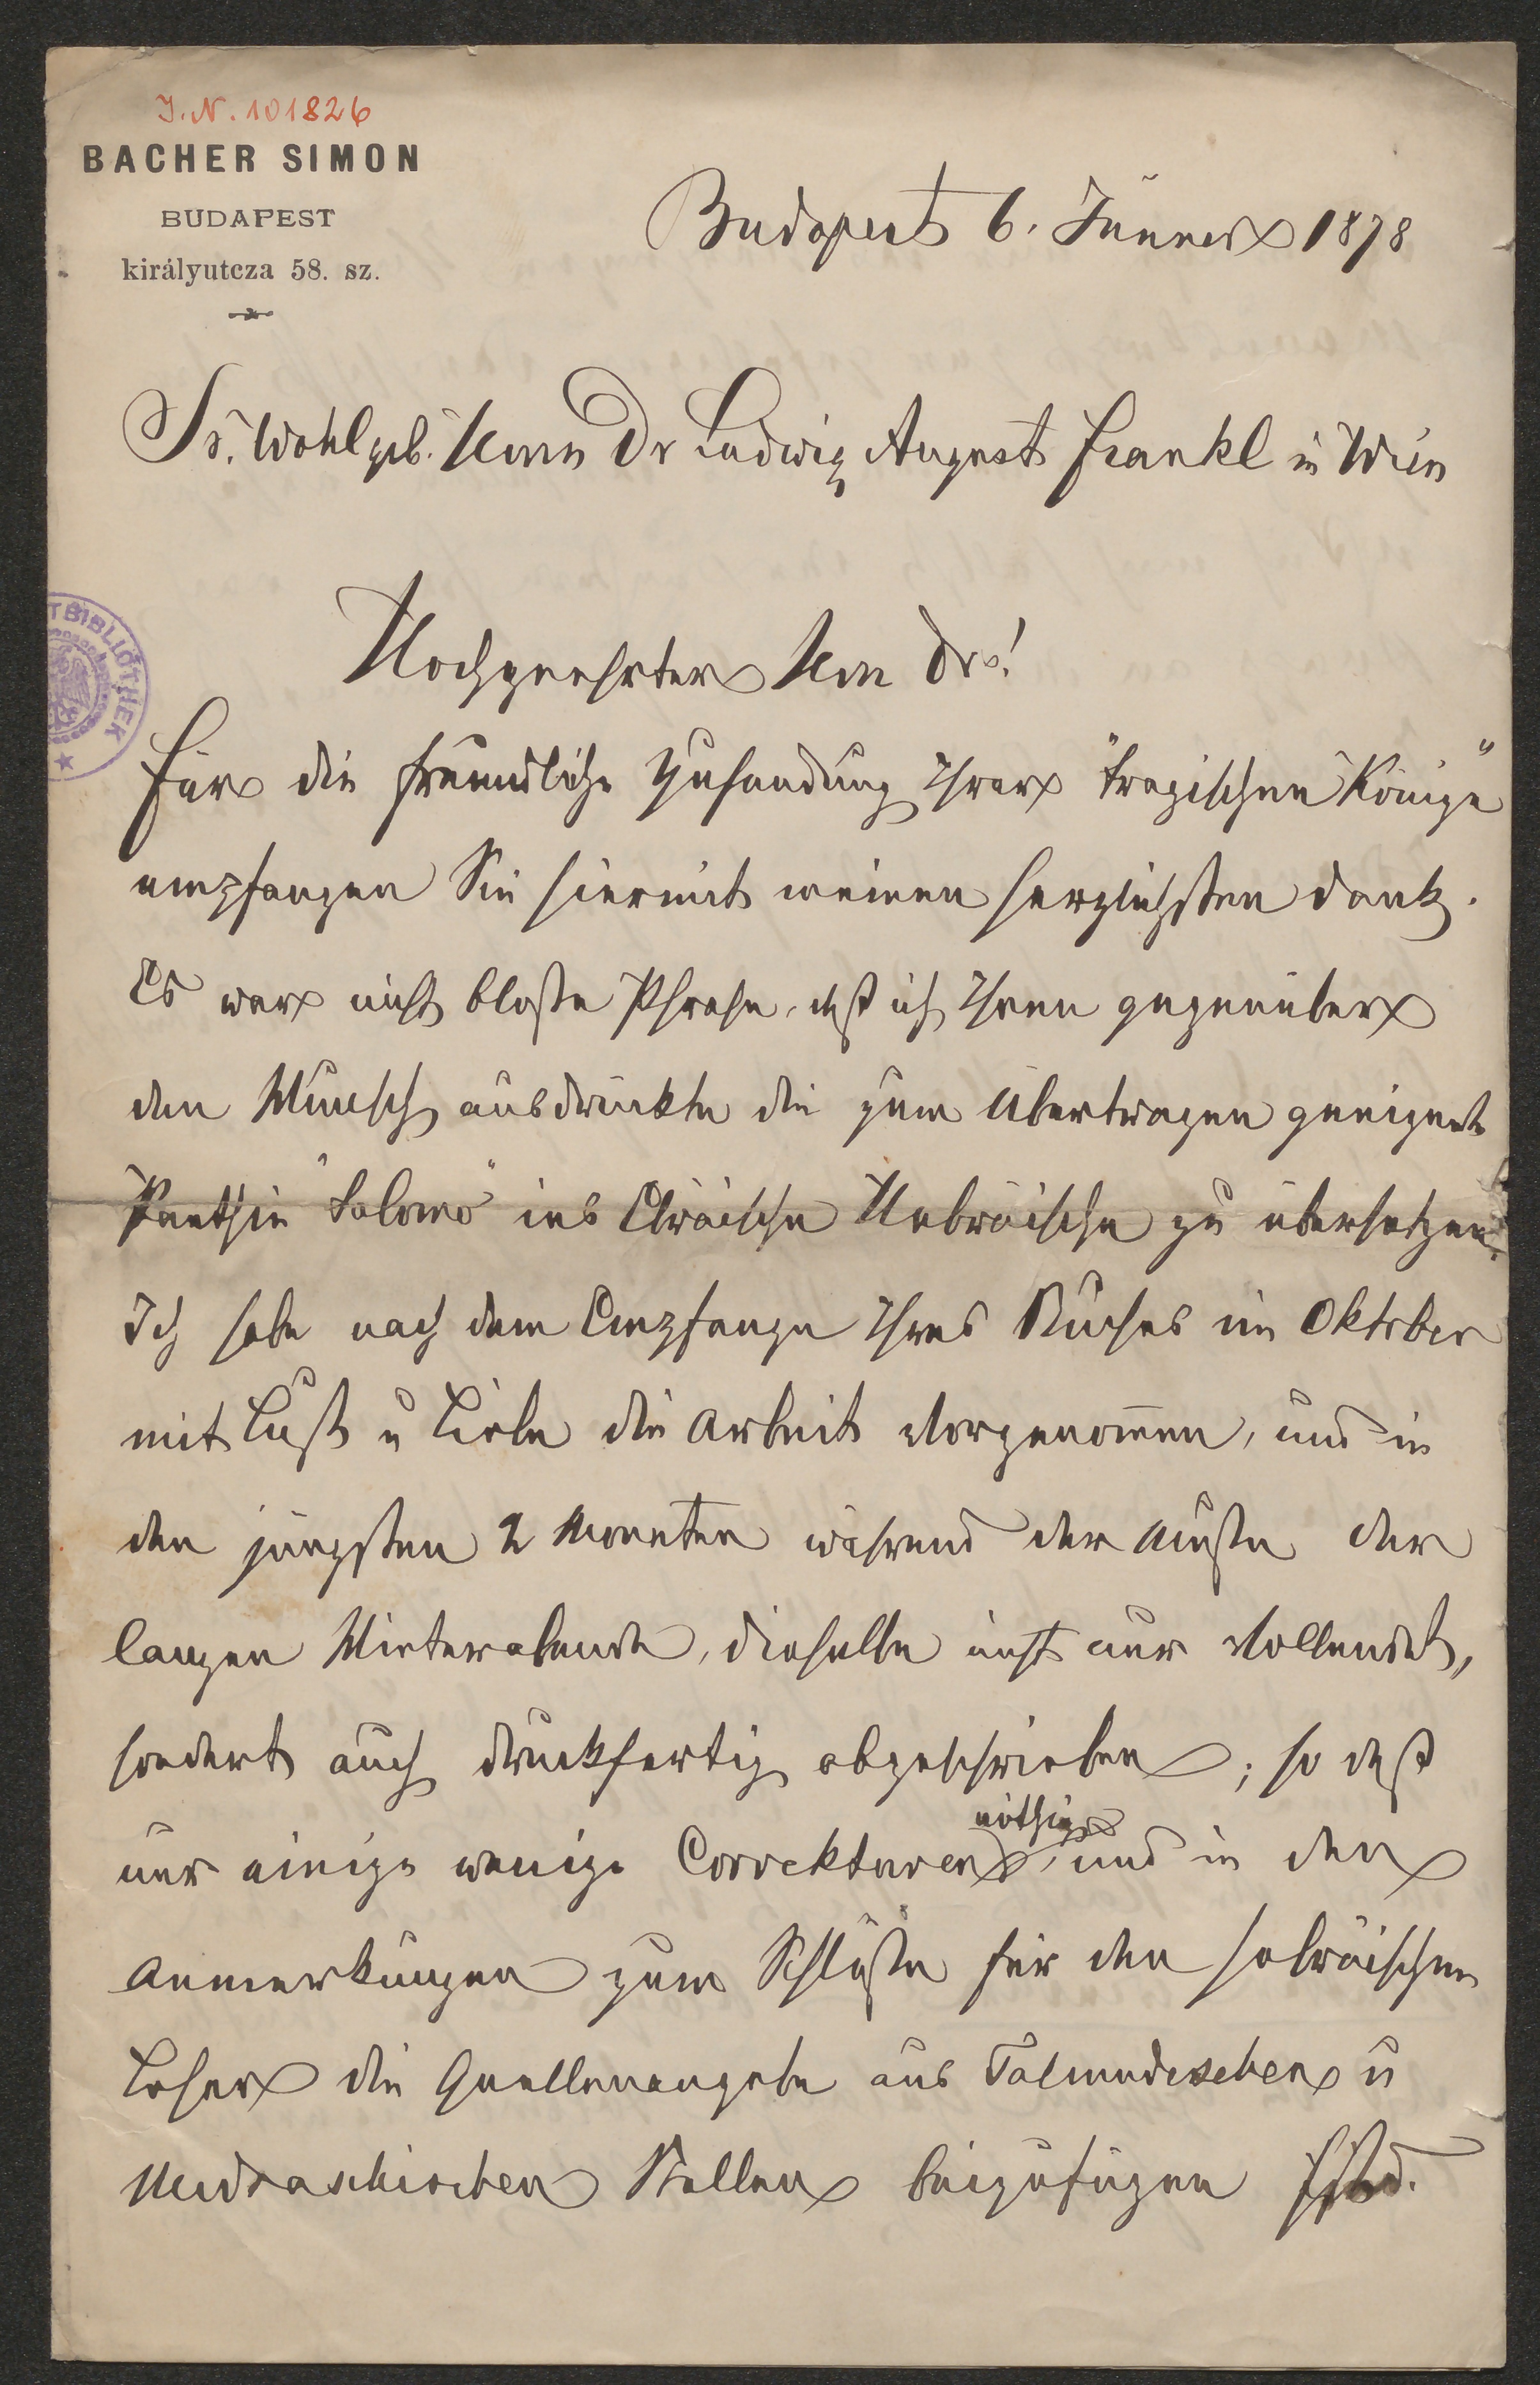 J. N. 101826
BACHER SIMON
BUDAPEST
királyutcza 58. sz.
Budapest 6. Jänner 1878
Sr. Wohlgeb. Herrn Dr Ludwig August Frankl in Wien
TBIBLIOTHEK
Hochgeehrter Herr Dr!
Für die freundliche Zusendung Ihrer "tragischen Könige"
empfangen Sie hiermit meinen herzlichsten Dank.
Es war nicht bloße Phrase, daß ich Ihnen gegenüber
den Wunsch ausdrückte die zum Übertragen geeignete
Parthie "Salomo" ins Hebräische zu übersetzen.
Ich habe nach dem Empfange Ihres Buches im Oktober
mit Lust u Liebe die Arbeit vorgenom̄en, und in
den jüngsten 2 Monaten während der Muße der
langen Winterabende, dieselbe nicht nur vollendet,
sondert auch druckfertig abgeschrieben; so daß
nur einige wenige Correkturen nöthig, und in den
Anmerkungen zum Schluße für den hebräischen
Leser die Quellenangabe aus Talmudischen u
Midraschischen Stellen beizufügen